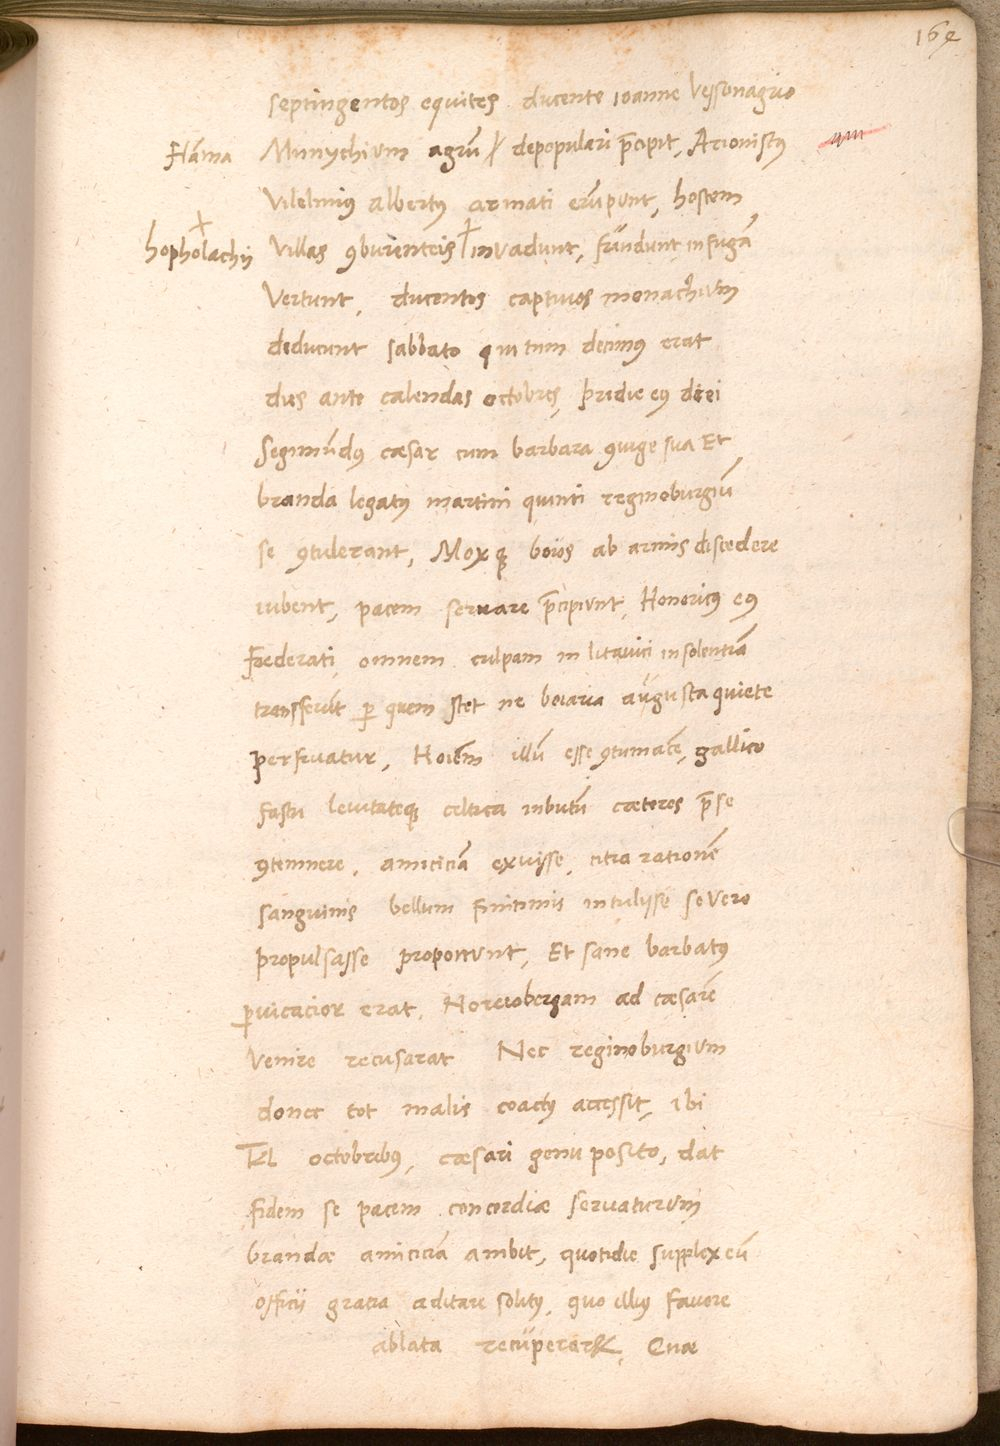 162
septingentos equites ducente ioanne Vessonagrio
Hāma Munychium agrū depopulari p̄cipit, Arionistꝰ
Vilelmiꝰ albertꝰ armati erūpunt, hostem
hopholachij Villas ꝯburentēis invadunt, fūndunt in fugā
Vertunt, ducentos captiuos monachium
deducunt sabbato quintum decimꝰ erat
dies ante calendas octobres, pridie eꝰ diei
Segimūdꝰ cæsar cum barbara ꝯiuge sua Et
branda legatꝰ martini quinti reginoburgiū
se ꝯtulerant, Moxqꝫ boios ab armis discedere
iubent, pacem seruare p̄cipiunt, Honoricꝰ eꝰ
Fœderati omnem culpam in litauici insolentiā
transferūt ꝑ quem stet ne boiaria augusta quiete
perfruatur, Hoiem̄ illū esse ꝯtumacē, gallico
fastu leuitateqꝫ celtica inbutū cæteros p̄ se
ꝯtemnere, amiciciā exuisse, citra rationē
sanguinis bellum finitimis intulisse se vero
propulsasse proponunt, Et sane barbatꝰ
ꝑuicacior erat, Noreiobergam ad cæsarē
Venire recusarat Nec reginoburgium
donec tot malis coactꝰ accessit, ibi
octobribꝰ, cæsari genu posito, dat
fidem se pacem concordiæ seruaturum
brandæ amiciciā ambit, quotidie supplex eū
officii gratia aditare solitꝰ, quo illiꝰ fauore
ablata recuperaret, Quæ